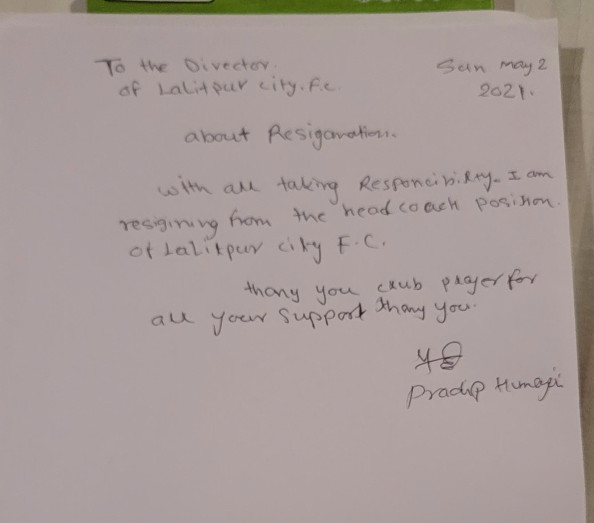 To the Director.
of Lalitpur city.F.c.
Sun may 2
2021.
about Resigaration.
with all taking Responcibility. I am
resigining from the head coach position.
of Lalitpur city F.C.
thany you club prayer for
all your support thany you.
Pradip Humagai